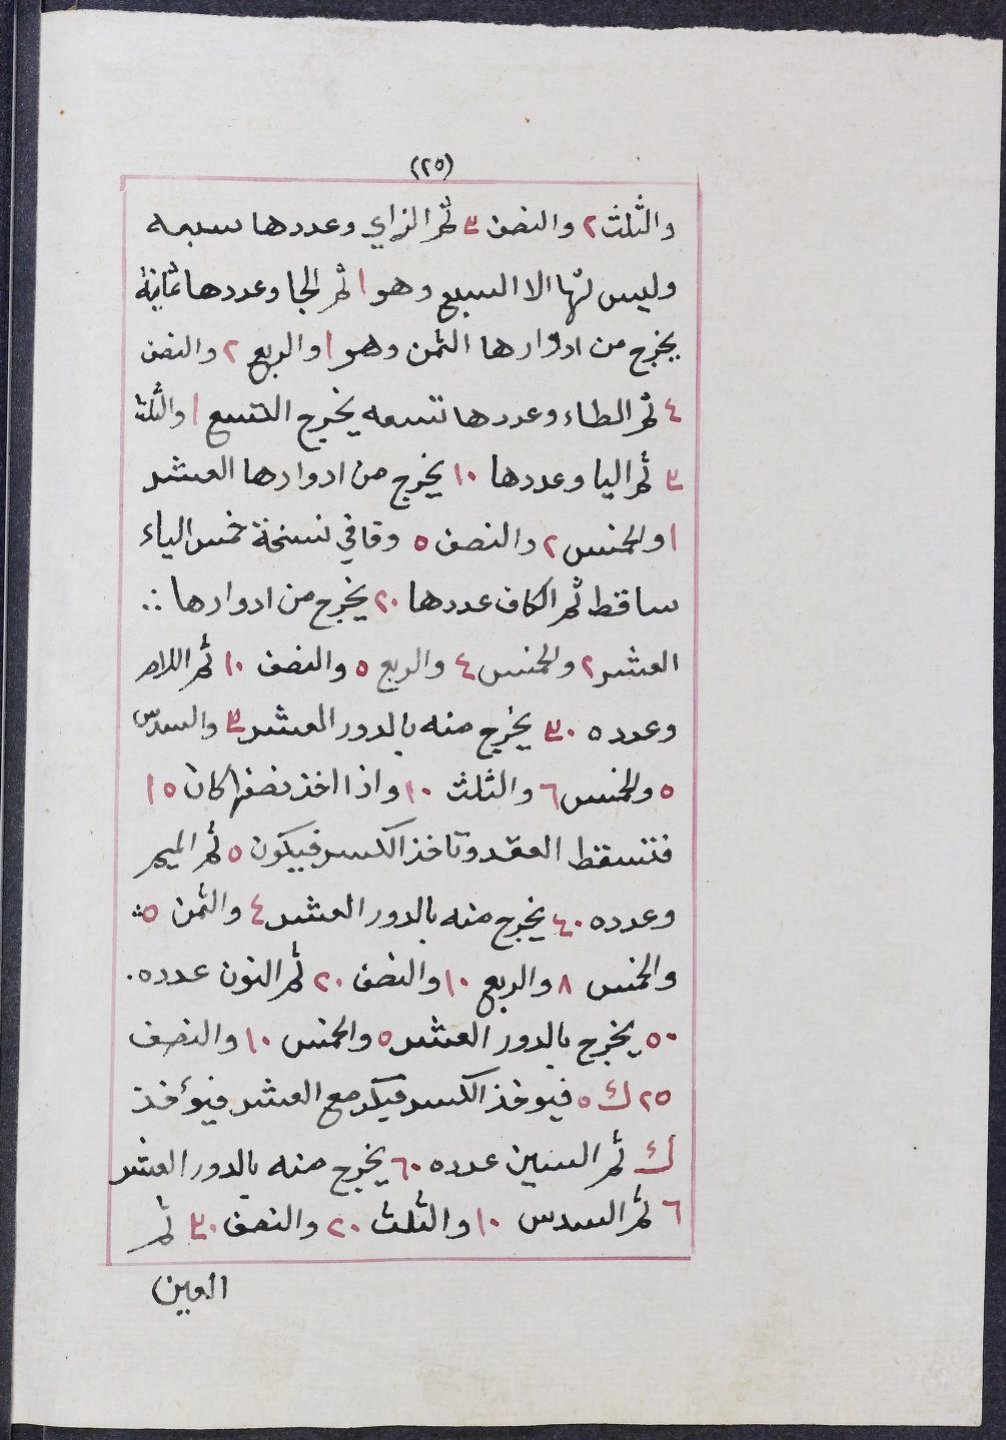 (٢٥)
والثلث ٢ والنصف ٣ ثم الزاي وعددها سبعه
وليس لها الا السبع وهو ١ ثم الحا وعددها ثمانية
يخرج من ادوارها الثمن وهو ١ والربع ٢ والنصف
٤ ثم الطاء وعددها تسعه يخرج التسع ١ والثلث
٣ ثم اليا وعددها ١٠ يخرج من ادوارها العشر
١ والخمس ٢ والنصف ٥ وقافي نسخة خمس الياء
ساقط ثم الكاف عددها ٢٠ يخرج من ادوارها ∴
العشر ٢ والخمس ٤ والربع ٥ والنصف ١٠ ثم اللام
وعدده ٣٠ يخرج منه بالدور العشر ٣ والسدس
٥ والخمس ٦ والثلث ١٠ واذا اخذ نصفها كان ١٥
فتسقط العقد وتاخذ الكسر فيكون ٥ ثم الميم
وعدده ٤٠ يخرج منه بالدور العشر ٤ والثمن ٥ ∴
والخمس ٨ والربع ١٠ والنصف ٢٠ ثم النون عدده .
٥٠ يخرج بالدور العشر ٥ والخمس ١٠ والنصف
٢٥ ك ٥ فيوخذ الكسر فيكر مع العشر فيؤخذ
ك ثم السين عدده ٦٠ يخرج منه بالدور العشر
٦ ثم السدس ١٠ والثلث ٢٠ والنصف ٣٠ ثم
العين